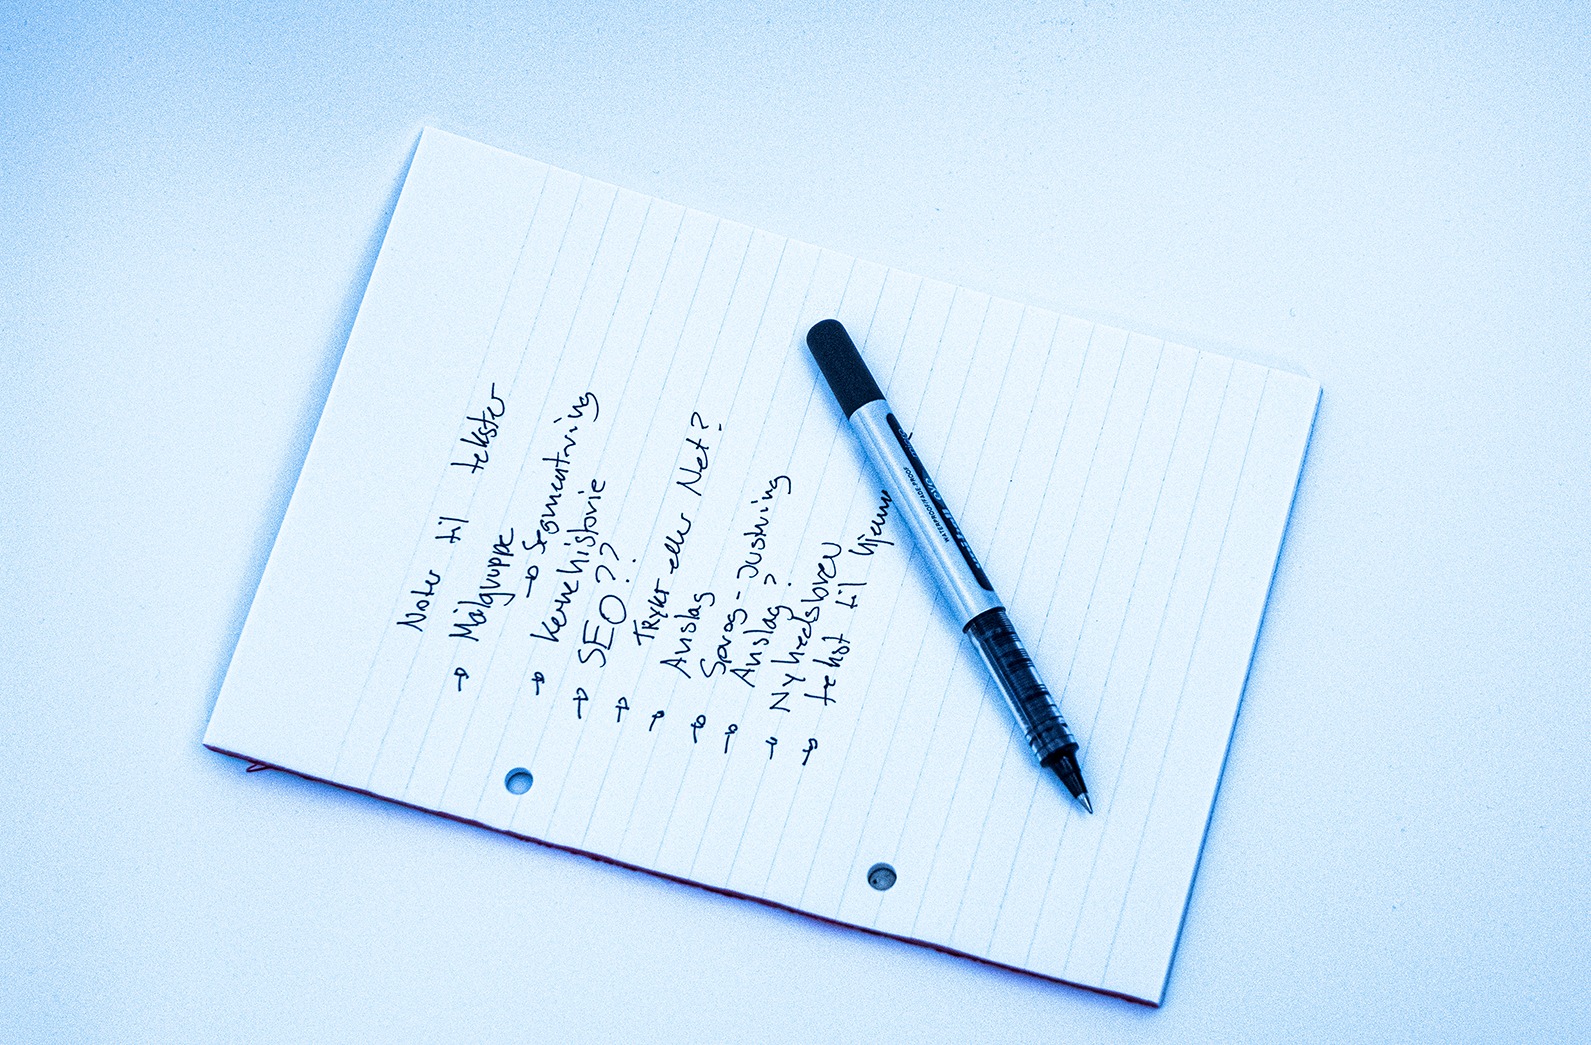 Noter til tekster
→ Målgruppe
→ Segmentering
→ Kernehistorie
→ SEO??
→ Tryk eller Net?
→ Anslag
→ Sprog-Justering
→ Anslag?
→ Nyhedsbrev
→ tekst til
WATERPROOF/FADE PROOF